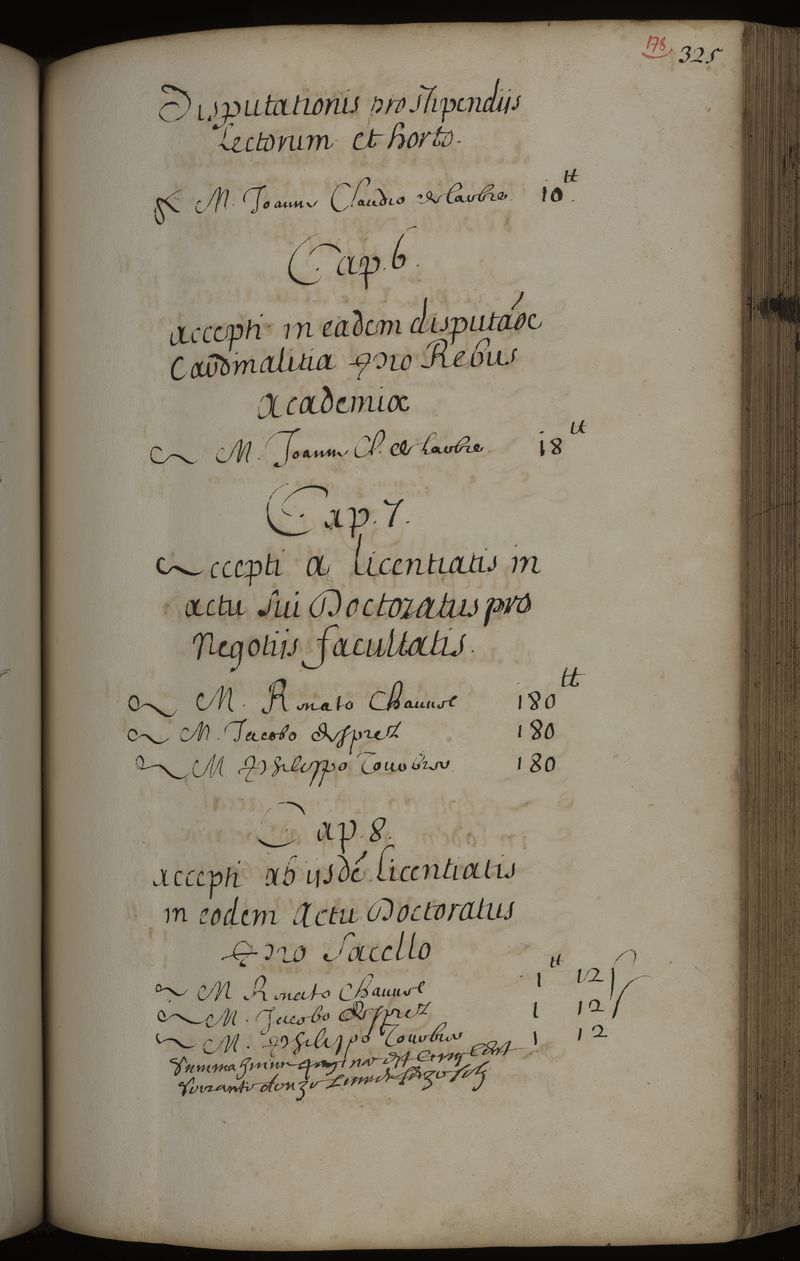 178 325
Disputationis pro stipendijs
Lectorum et horto.
A M. Joanne Claudio de la 10 tt
Cap. 6.
accepti in eadem disputaõe
Cardinalitia pro Rebus
Academiæ
A M. Joanne Cl. de la 18 tt
Cap. 7.
Accepti a licentiatis in
actu sui Doctoratus pro
Negotijs facultatis.
A M. Renato Chauuel 180 tt
A M. Jacobo Desprez 180
A M Philippo 180
Cap. 8.
accepti ab ijsdẽ licentiatis
in eodem Actu Doctoratus
Pro Sacello
A M Renato Chauuel 1 tt 12 ſ
A M. Jacobo Desprez 1 12 ſ
A M. Philippo 1 12
Summa paginæ Cinq Cent
Soixante donze